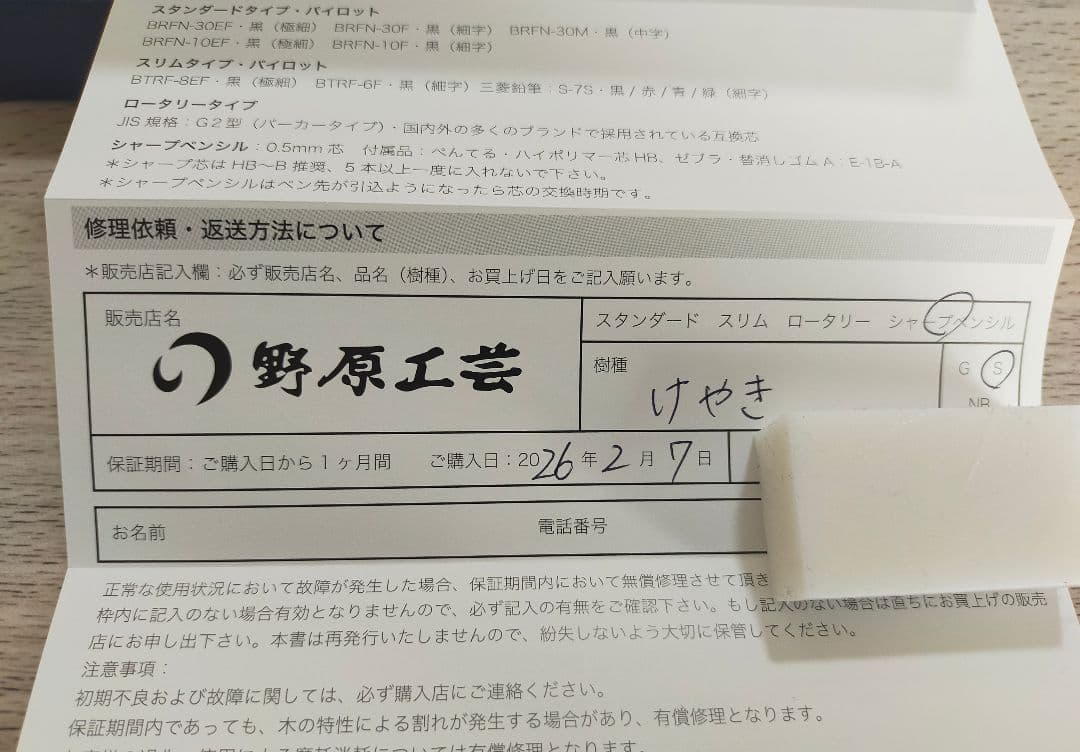 スタンダードタイプ・パイロット
BRFN-30EF・黒（極細） BRFN-30F・黒（細字） BRFN-30M・黒（中字）
BRFN-10EF・黒（極細） BRFN-10F・黒（細字）
スリムタイプ・パイロット
BTRF-8EF・黒（極細） BTRF-6F・黒（細字）三菱鉛筆：S-7S・黒/赤/青/緑（細字）
ロータリータイプ
JIS規格：G2型（パーカータイプ）・国内外の多くのブランドで採用されている互換芯
シャープペンシル：0.5mm芯 付属品：ぺんてる・ハイポリマー芯HB、ゼブラ・替消しゴムA：E-1B-A
＊シャープ芯はHB〜B推奨、5本以上一度に入れないで下さい。
＊シャープペンシルはペン先が引込ようになったら芯の交換時期です。
修理依頼・返送方法について
＊販売店記入欄：必ず販売店名、品名（樹種）、お買上げ日をご記入願います。
販売店名
野原工芸
スタンダード スリム ロータリー シャープペンシル
樹種
けやき
G S
NB
保証期間：ご購入日から1ヶ月間 ご購入日：2026年2月7日
お名前 電話番号
正常な使用状況において故障が発生した場合、保証期間内において無償修理させて頂き
枠内に記入のない場合有効となりませんので、必ず記入の有無をご確認下さい。もし記入のない場合は直ちにお買上げの販売
店にお申し出下さい。本書は再発行いたしませんので、紛失しないよう大切に保管してください。
注意事項：
初期不良および故障に関しては、必ず購入店にご連絡ください。
保証期間内であっても、木の特性による割れが発生する場合があり、有償修理となります。